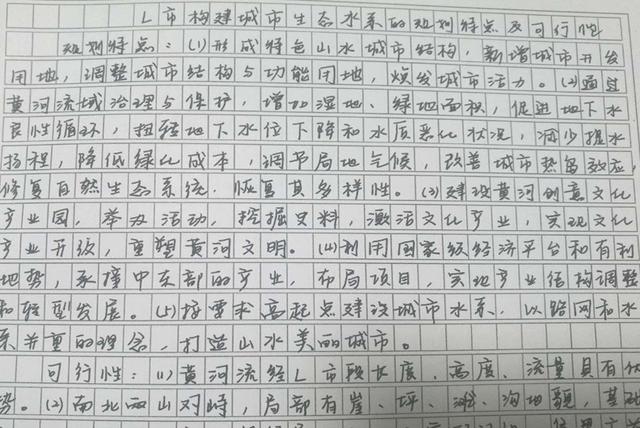 L市构建城市生态水系的规划特点及可行性
规划特点：(1)形成特色山水城市结构，新增城市开发
用地，调整城市结构与功能用地，焕发城市活力。(2)通过
黄河流域治理与保护，增加湿地、绿地面积，促进地下水
良性循环，扭转地下水位下降和水质恶化状况，减少提水
扬程，降低绿化成本，调节局地气候，改善城市热岛效应，
修复自然生态系统，恢复其多样性。(3)建设黄河创意文化
产业园，举办活动，挖掘史料，激活文化产业，实现文化
产业升级，重塑黄河文明。(4)利用国家级经济平台和有利
地势，承接中东部的产业，布局项目，实地产业结构调整
和转型发展。(5)按要求高起点建设城市水系，以路网和水
系并重的理念，打造山水美丽城市。
可行性：(1)黄河流经L市段长度、高度、流量具有优
势。(2)南北两山对峙，局部有崖、坪、滩、沟地貌，基础